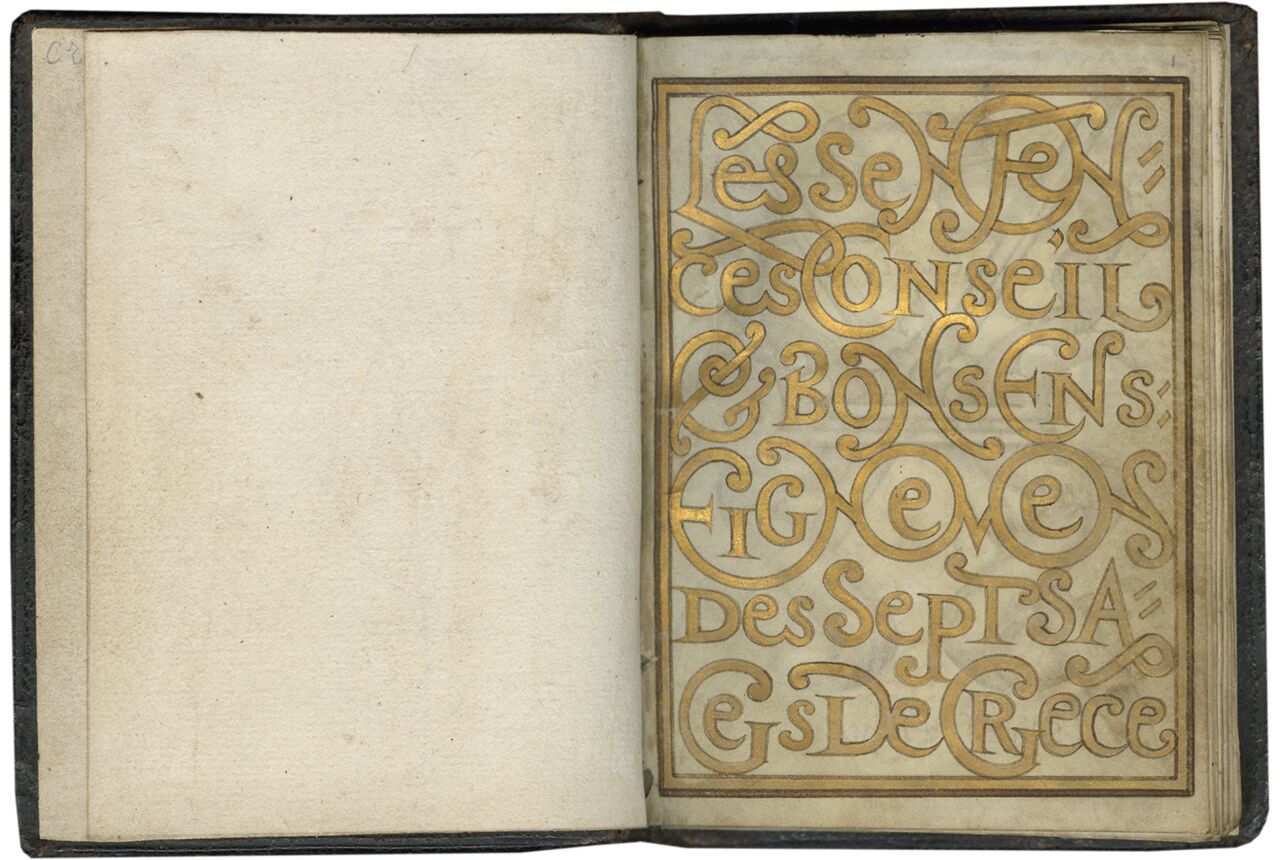 C2
1
Les SeNTeN=
ces CONseiL
& BONs ENs:
EIGNeMeN
Des SepT SA=
Ges De GRece